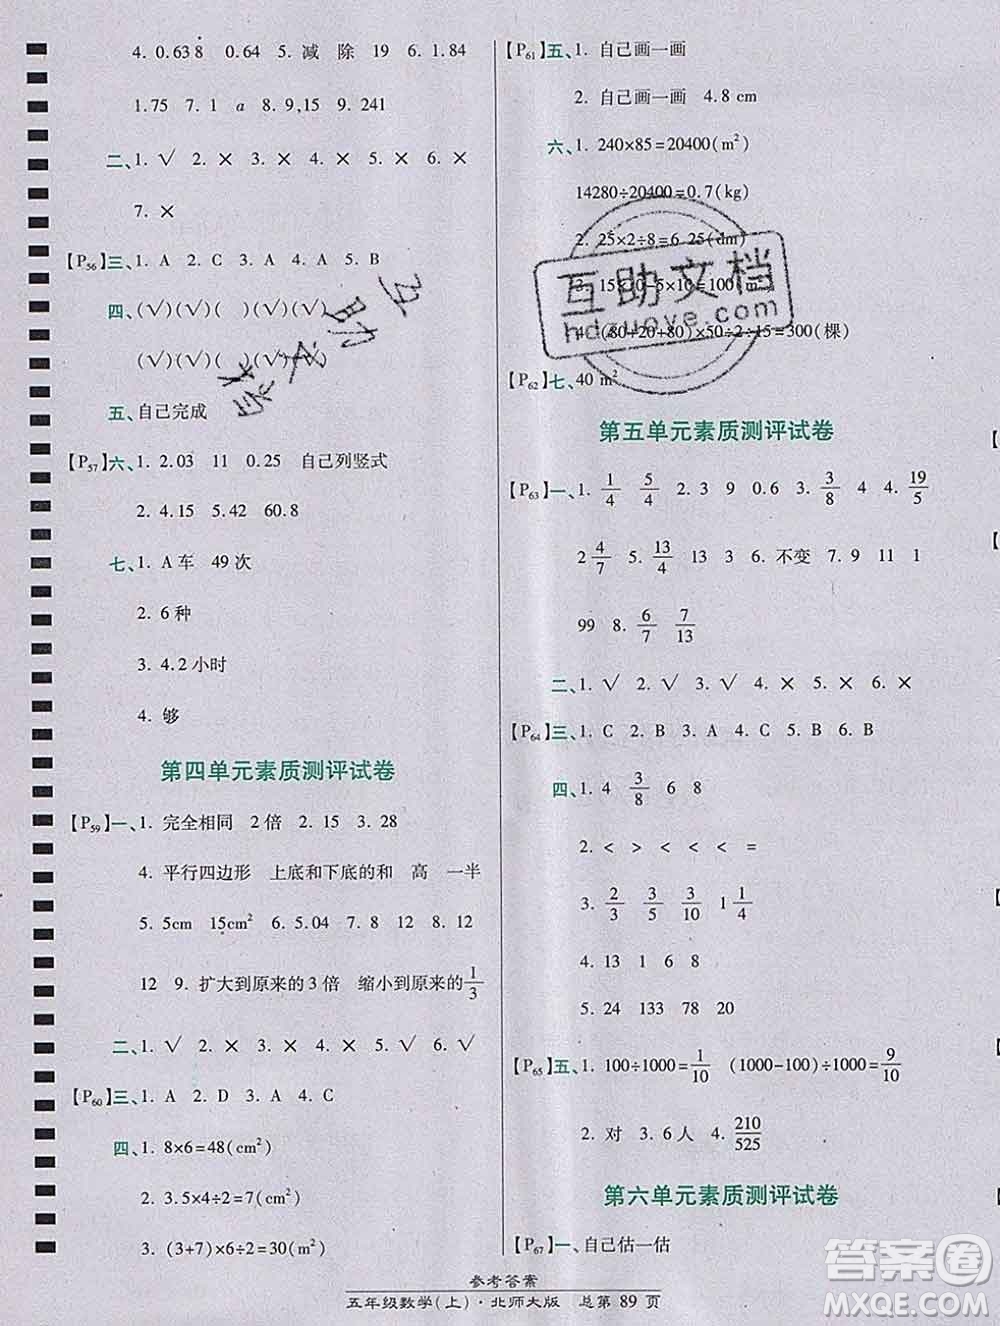 4. 0.638  0.64  5. 减  除  19  6. 1.84
1.75  7. 1  a  8. 9,15  9. 241
二、1. √  2. ×  3. ×  4. ×  5. ×  6. ×
7. ×
【P56】三、1. A  2. C  3. B  4. A  5. B
四、(√)(√)(  )(√)(√)
(√)(√)(  )(√)(√)
五、自己完成
【P57】六、1. 2.03  11  0.25  自己列竖式
2. 4.15  5.42  60.8
七、1. A车  49次
2. 6种
3. 4.2小时
4. 够
第四单元素质测评试卷
【P59】一、1. 完全相同  2倍  2. 15  3. 28
4. 平行四边形  上底和下底的和  高  一半
5. 5cm  15cm²  6. 5.04  7. 8  12  8. 12
12  9. 扩大到原来的3倍  缩小到原来的1/3
二、1. √  2. ×  3. ×  4. ×  5. √  6. √
【P60】三、1. A  2. D  3. A  4. C
四、1. 8×6=48(cm²)
2. 3.5×4÷2=7(cm²)
3. (3+7)×6÷2=30(cm²)
【P61】五、1. 自己画一画
2. 自己画一画  4.8 cm
六、1. 240×85=20400(m²)
14280÷20400=0.7(kg)
2. 25×2÷8=6.25(dm)
3. 15×10-5×10=100(m²)
4. (80+20+80)×50÷2÷15=300(棵)
【P62】七、40 m²
第五单元素质测评试卷
【P63】一、1. 1/4  5/4  2. 3  9  0.6  3. 3/8  4  4. 19/5
2 4/7  5. 13/4  13  3  6. 不变  7. 9  11  1
99  8. 6/7  7/13
二、1. √  2. √  3. √  4. ×  5. ×  6. ×
【P64】三、1. C  2. B  3. A  4. C  5. B  6. B
四、1. 4  3/8  6  8
2. <  >  <  <  <  =
3. 2/3  3/5  3/10  1 1/4
4. 13  1  6  8
5. 24  133  78  20
【P65】五、1. 100÷1000=1/10  (1000-100)÷1000=9/10
2. 对  3. 6人  4. 210/525
第六单元素质测评试卷
【P67】一、自己估一估
参考答案
五年级数学(上)·北师大版  总第 89 页
互助文档
hdzuoye.com
互助文档
答案圈
MXQE.COM